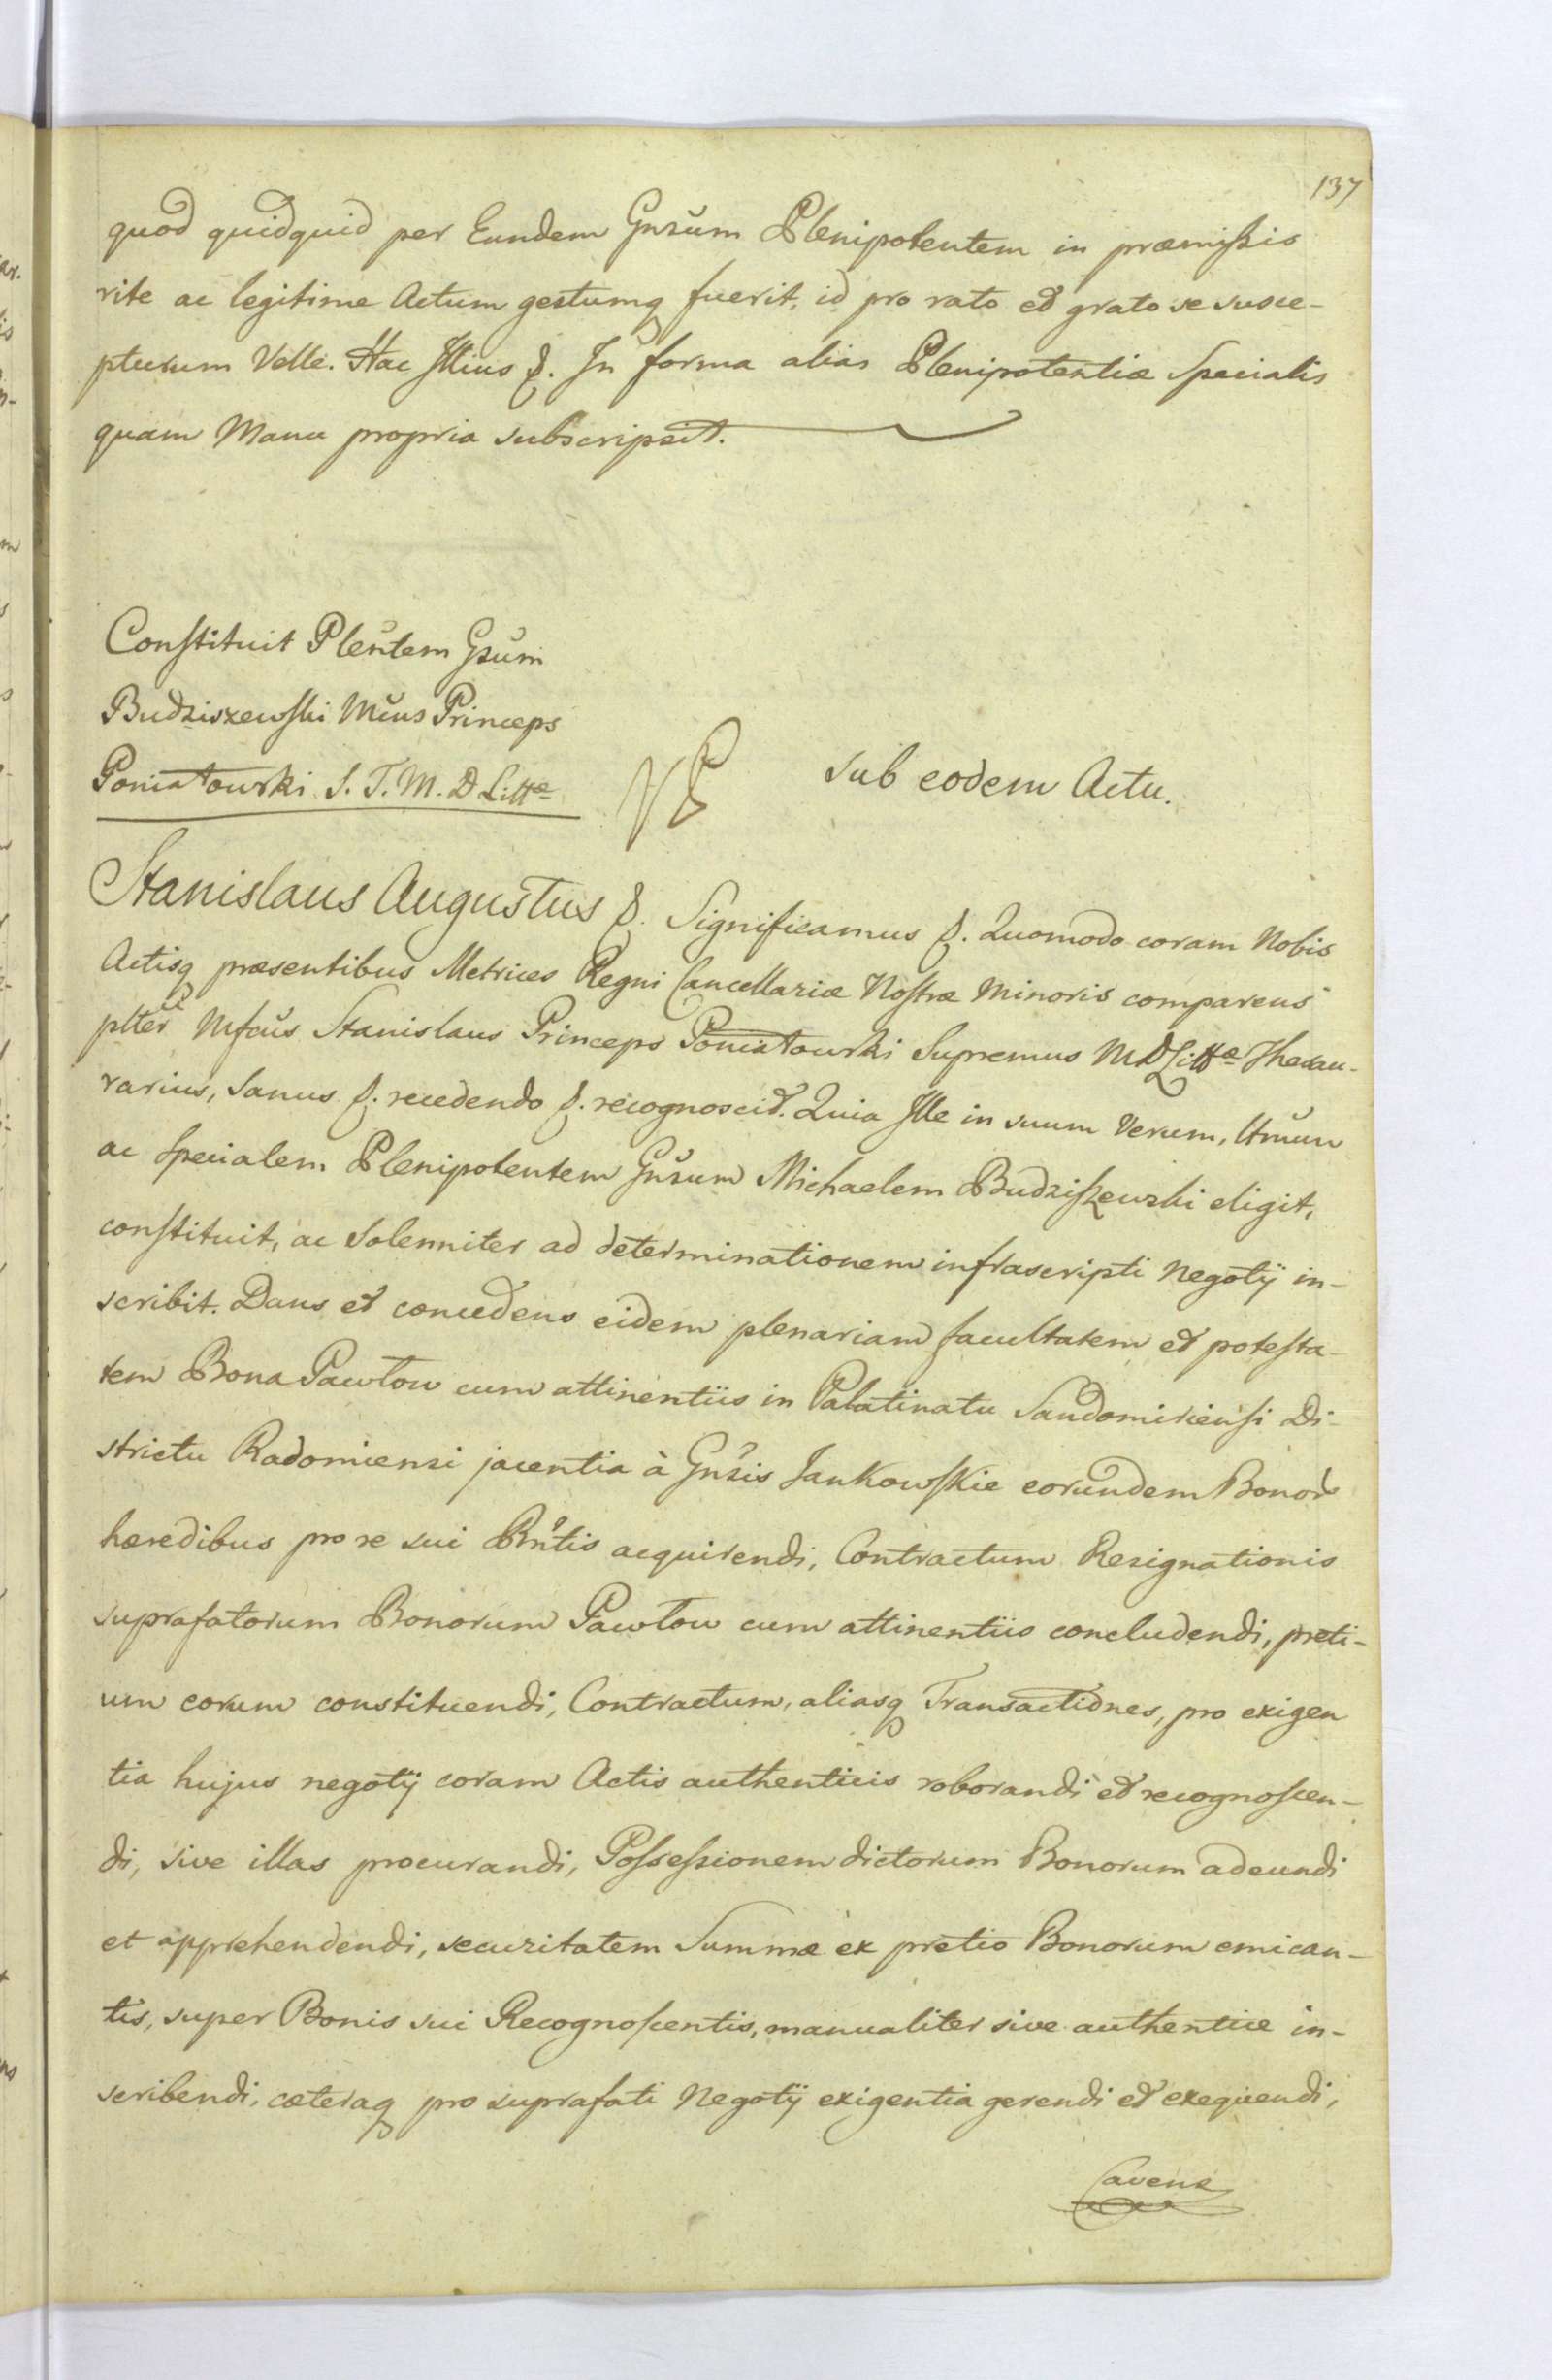 137
quod quidquid per Eundem Gnrūm Plenipotentem in præmissis
rite ac legitime Actum gestumq fuerit, id pro rato et grato se susce-
pturum Velle. Hac Illius &. In forma alias Plenipotentiæ Specialis
quam Manu propria subscripsit.
Constituit Plentem Gsūm
Budziszewski Mcus Princeps
Poniatowski S. T. M. D Littæ
sub eodem Actu.
Stanislaus Augustus &. Significamus &. Quomodo coram Nobis
Actisq præsentibus Metrices Regni Cancellariæ Nostræ Minoris comparens
plter Mfcūs Stanislaus Princeps Poniatowski Supremus M D Littæ Thesau-
rarius, Sanus &. recedendo &. recognoscit. Quia Ille in suum Verum, ltmūm
ac Specialem Plenipotentem Gnrūm Michaelem Budziszewski eligit,
constituit, ac Solenniter ad determinationem infrascripti Negotij in-
scribit. Dans et concedens eidem plenariam facultatem et potesta-
tem Bona Pawłow cum attinentiis in Palatinatu Sandomiriensi Di-
strictu Radomiensi jacentia à Gnsis Jankowskie eorundem Bonor
hæredibus pro re sui Pntis acquirendi, Contractum Resignationis
suprafatorum Bonorum Pawłow cum attinentiis concludendi, preti-
um eorum constituendi, Contractum, aliasq Transactiones, pro exigen
tia hujus negotij coram Actis authenticis roborandi et recognoscen-
di, sive illas procurandi, Possessionem dictorum Bonorum adeundi
et apprehendendi, securitatem Summæ ex pretio Bonorum emican-
tis, super Bonis sui Recognoscentis, manualiter sive authentice in-
scribendi, cæteraq pro suprafati Negotij exigentia gerendi et exequendi,
Cavens